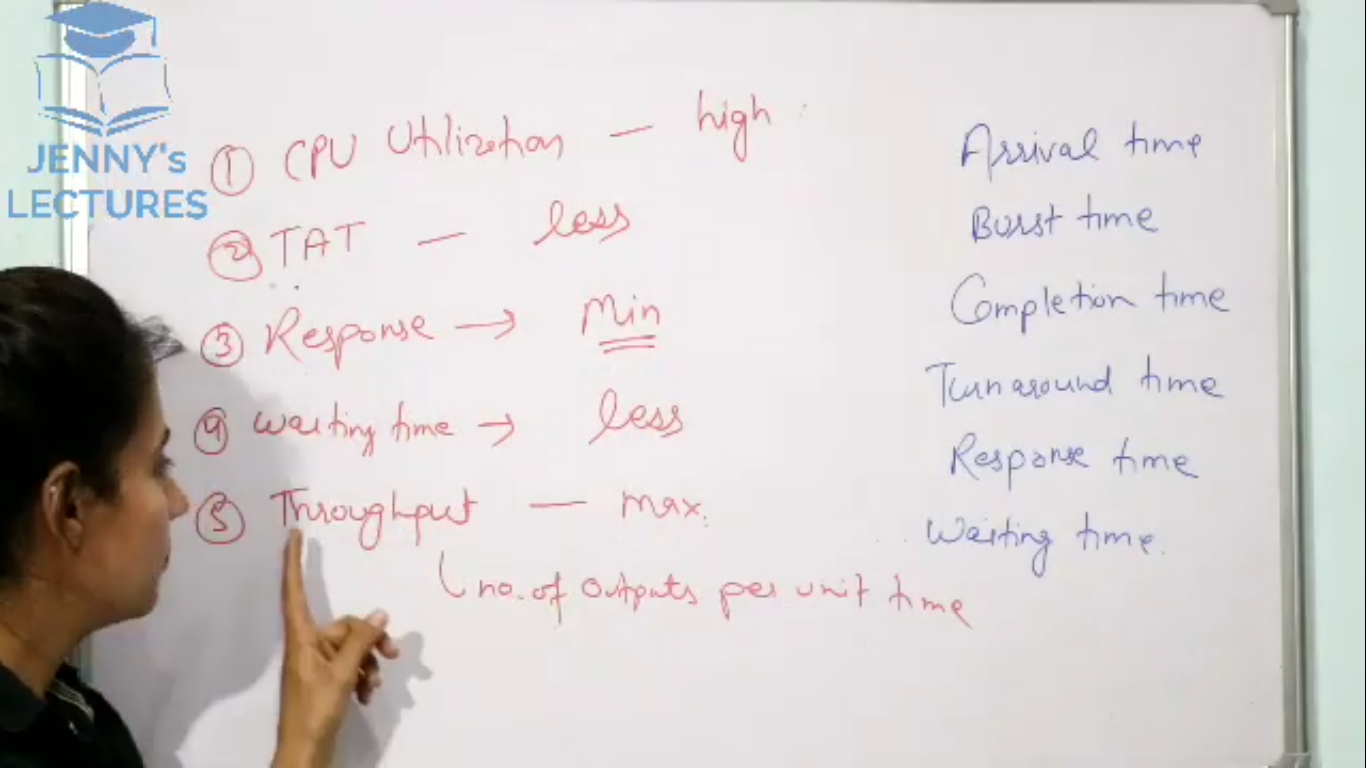 JENNY's
LECTURES
① CPU Utilization — high
② TAT — less
③ Response → Min
④ Waiting time → less
⑤ Throughput — Max.
no. of outputs per unit time
Arrival time
Burst time
Completion time
Turnaround time
Response time
Waiting time.